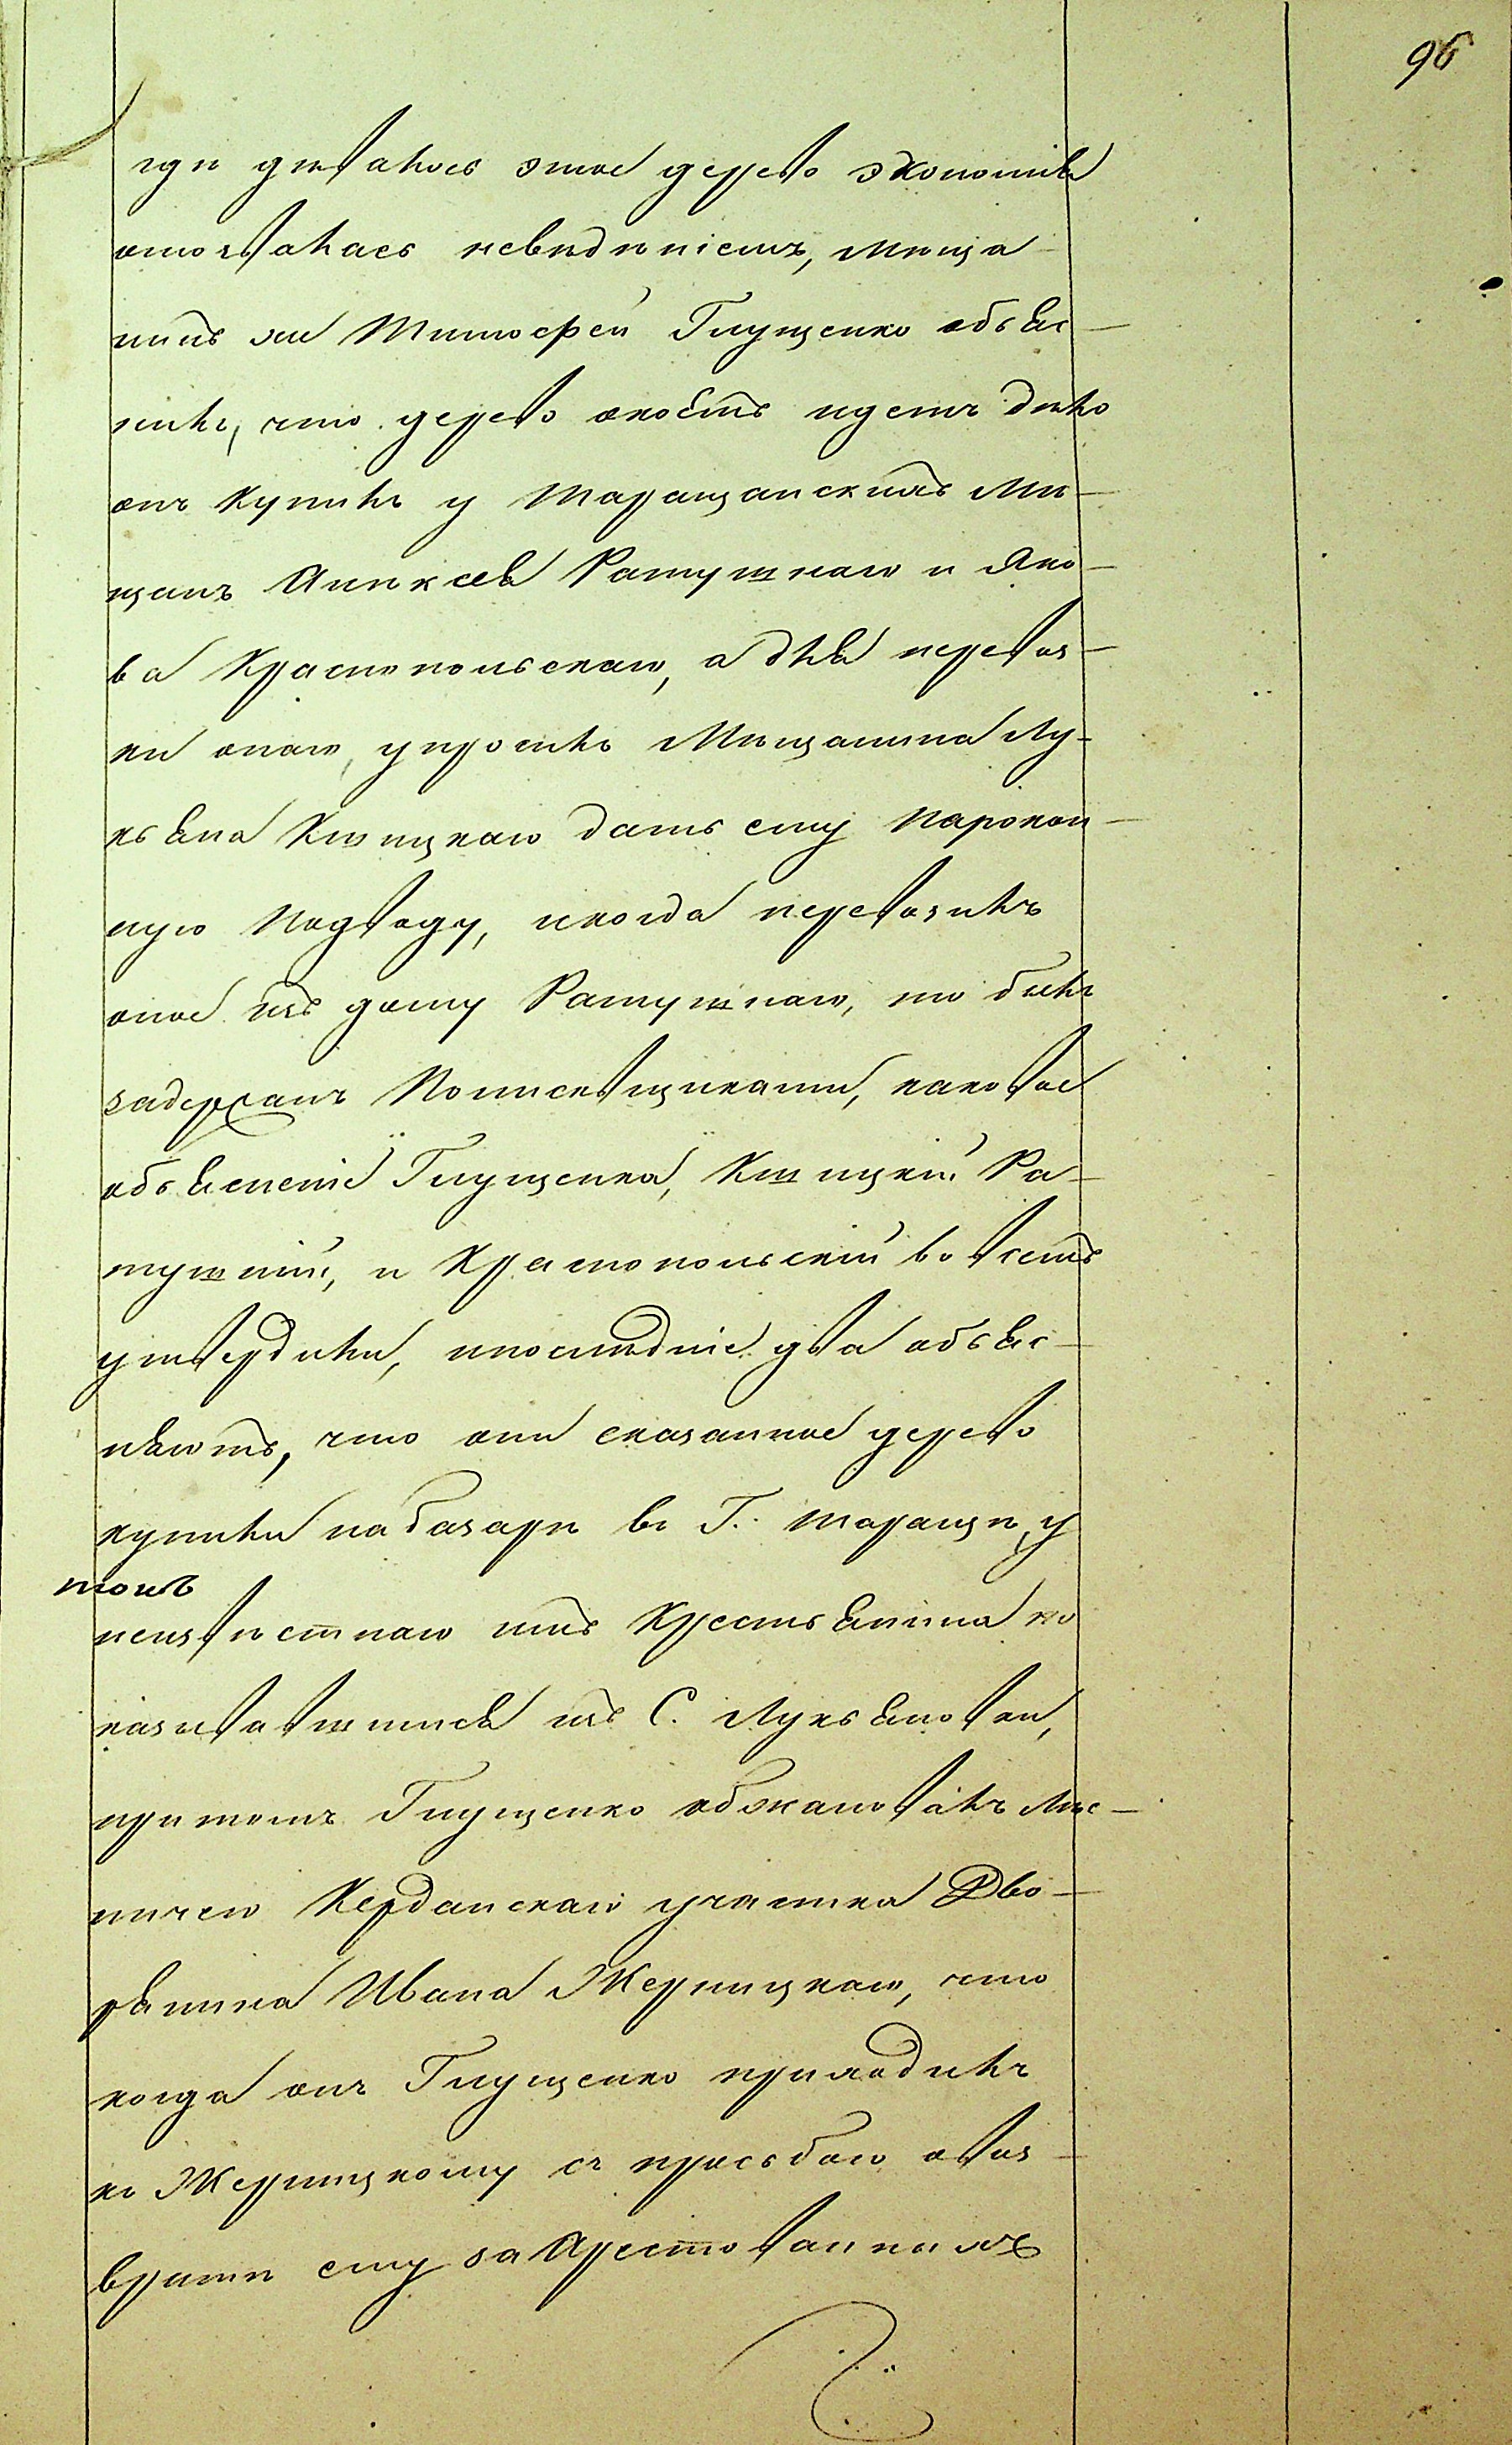 96
гдѣ дѣвалось этое дерево экономія
отозвалась невѣдѣніемъ, Мѣща-
нинъ же Тимофей Глущенко объяс-
нилъ, что дерево окоемъ идетъ дѣло
онъ купилъ у Таращанскихъ Мѣ-
щанъ Алексея Ратушнаго и Яко-
ва Краснопольскаго, а для перевоз-
ки онаго, упросилъ Мѣщанина Лу-
кьяна Кшицкаго дать ему парокон-
ную подводу, и когда перевозилъ
оное изъ дому Ратушнаго, то былъ
задержанъ Полисовщиками, каковое
объясненіе Глущенка, Кшицкій Ра-
тушній, и Краснопольскій во всемъ
утвердили, и послѣдніе два объяс-
няютъ, что они сказанное дерево
купили на базарѣ въ Г. Таращѣ, у
неизвѣстнаго имъ Крестьянина по
казывавшимся изъ С. Лукьяновки,
притомъ Глущенко обжаловалъ Лѣс-
ничего Керданскаго участка Дво-
рянина Ивана Жерницкаго, что
когда онъ Глущенко приходилъ
къ Жерницкому съ просьбою овоз-
вратѣ ему заарестованныхъ